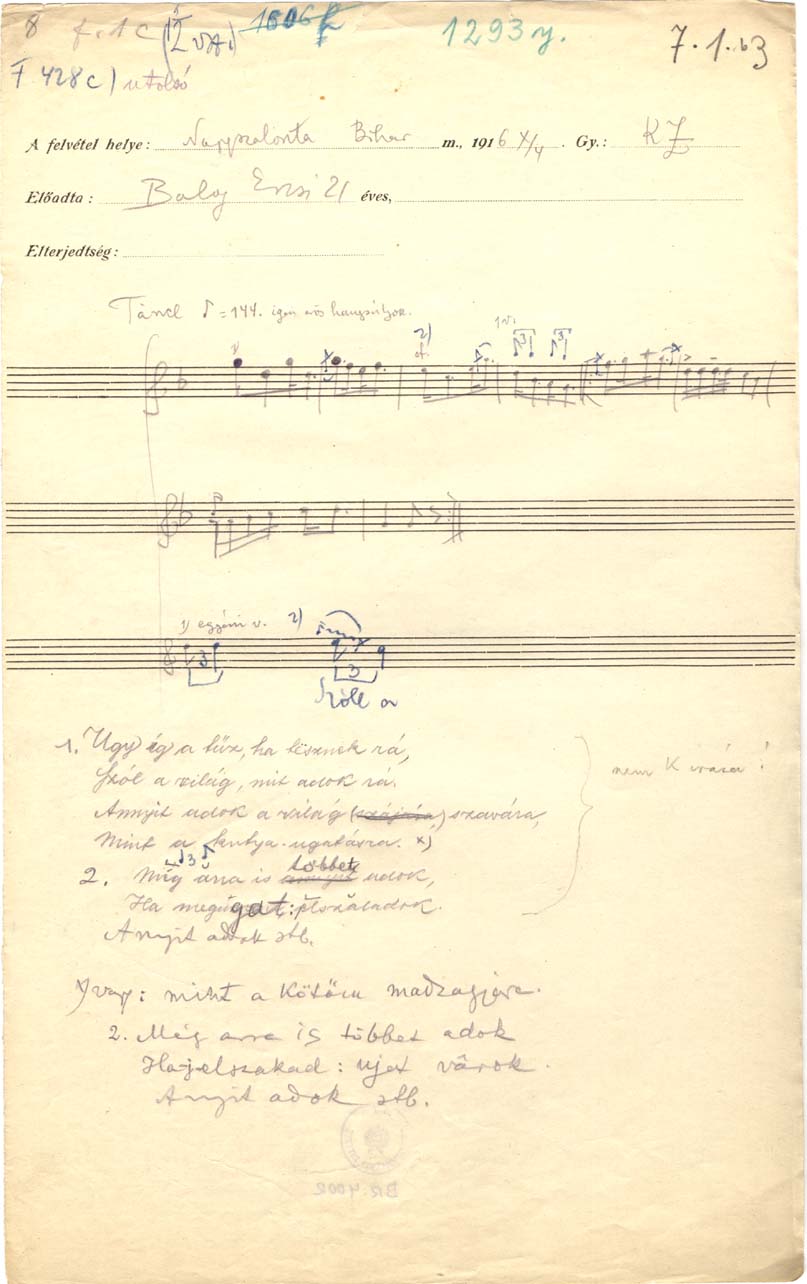 8 f. 1 c (I VA.) 1606 1293 y. 7.1.63
F 428 c) utolsó
A felvétel helye: Nagyszalonta Bihar m., 1916 X/4. Gy.: KZ
Előadta: Balog Erzsi 21 éves,
Elterjedtség:
Tánc ♪ = 144. igen erős hangsúlyok.
2) 1) v.
3 3
1) egyéni v. 2)
3 3
Szóll a
1. Ugy ég a tüz, ha tësznek rá,
Szól a világ, mit adok rá.
Annyit adok a világ (szájára) szavára,
Mint a kutya-ugatásra. x)
nem K irása!
3
2. Még arra is többet adok,
Ha megúgat: elszaladok.
Annyit adok stb.
x) vagy: mint a kötőm madzagjára.
2. Még arra is többet adok
Ha elszakad: ujat várok.
Annyit adok stb.
BR 4002